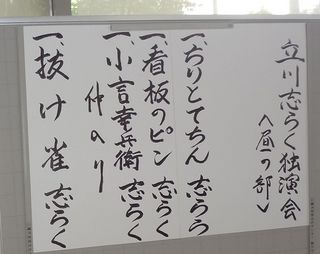 立川志らく独演会
〈昼の部〉
一、ちりとてちん 志らら
一、看板のピン 志らく
一、小言幸兵衛 志らく
仲入り
一、抜け雀 志らく